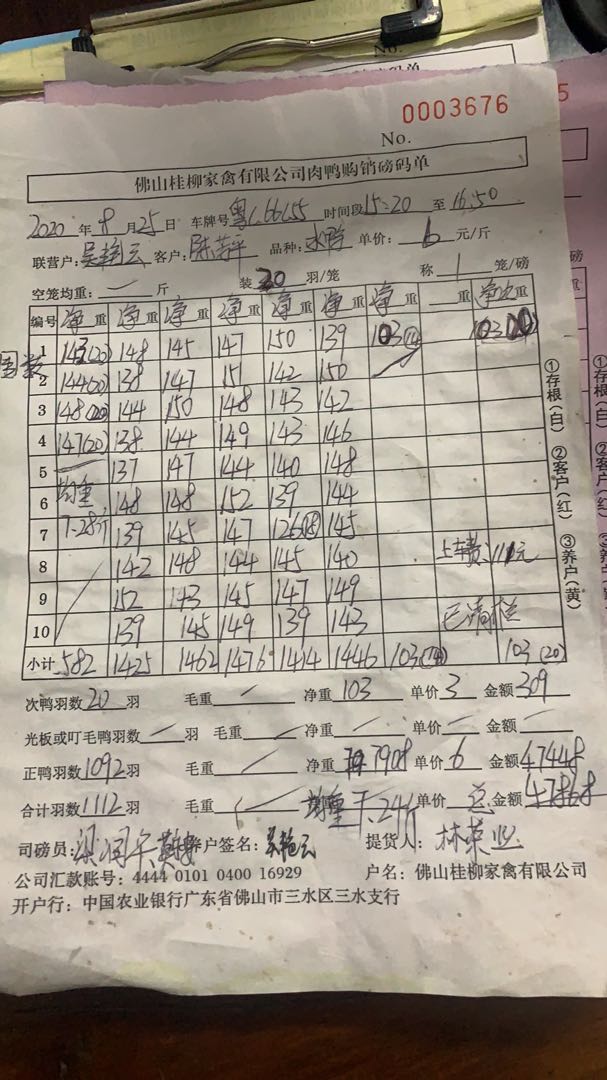 No.
0003676
No.
佛山桂柳家禽有限公司肉鸭购销磅码单
2020 年 8 月 25 日 车牌号 粤L66L55 时间段 15:20 至 16:50
联营户: 吴艳云 客户: 陈芳平 品种: 水鸭 单价: 6 元/斤
空笼均重: 一 斤 装 20 羽/笼 称 1 笼/磅
编号 净重 净重 净重 净重 净重 净重 净重 重 净次重
1 143(20) 148 145 147 150 139 103(14) 103(20)
2 144(20) 138 147 151 142 150
3 148(20) 144 150 148 143 142
4 147(20) 138 144 149 143 146
5 137 147 144 140 148
6 均重 148 148 152 139 144
7 7.28斤 139 145 147 126(18) 145
8 142 148 144 145 140 上车费:111元
9 152 143 145 147 149
10 139 145 149 139 143
小计 582 1425 1462 1476 1414 1446 103(14) 103(20)
次鸭羽数 20 羽 毛重 净重 103 单价 3 金额 309
光板或叮毛鸭羽数 羽 毛重 净重 单价 金额
正鸭羽数 1092 羽 毛重 净重 7908 单价 6 金额 47448
合计羽数 1112 羽 毛重 均重 7.24斤 单价 总 金额
司磅员: 养户签名: 吴艳云 提货人: 林荣业
公司汇款账号: 4444 0101 0400 16929 户名: 佛山桂柳家禽有限公司
开户行: 中国农业银行广东省佛山市三水区三水支行
①存根(白) ②客户(红) ③养户(黄)